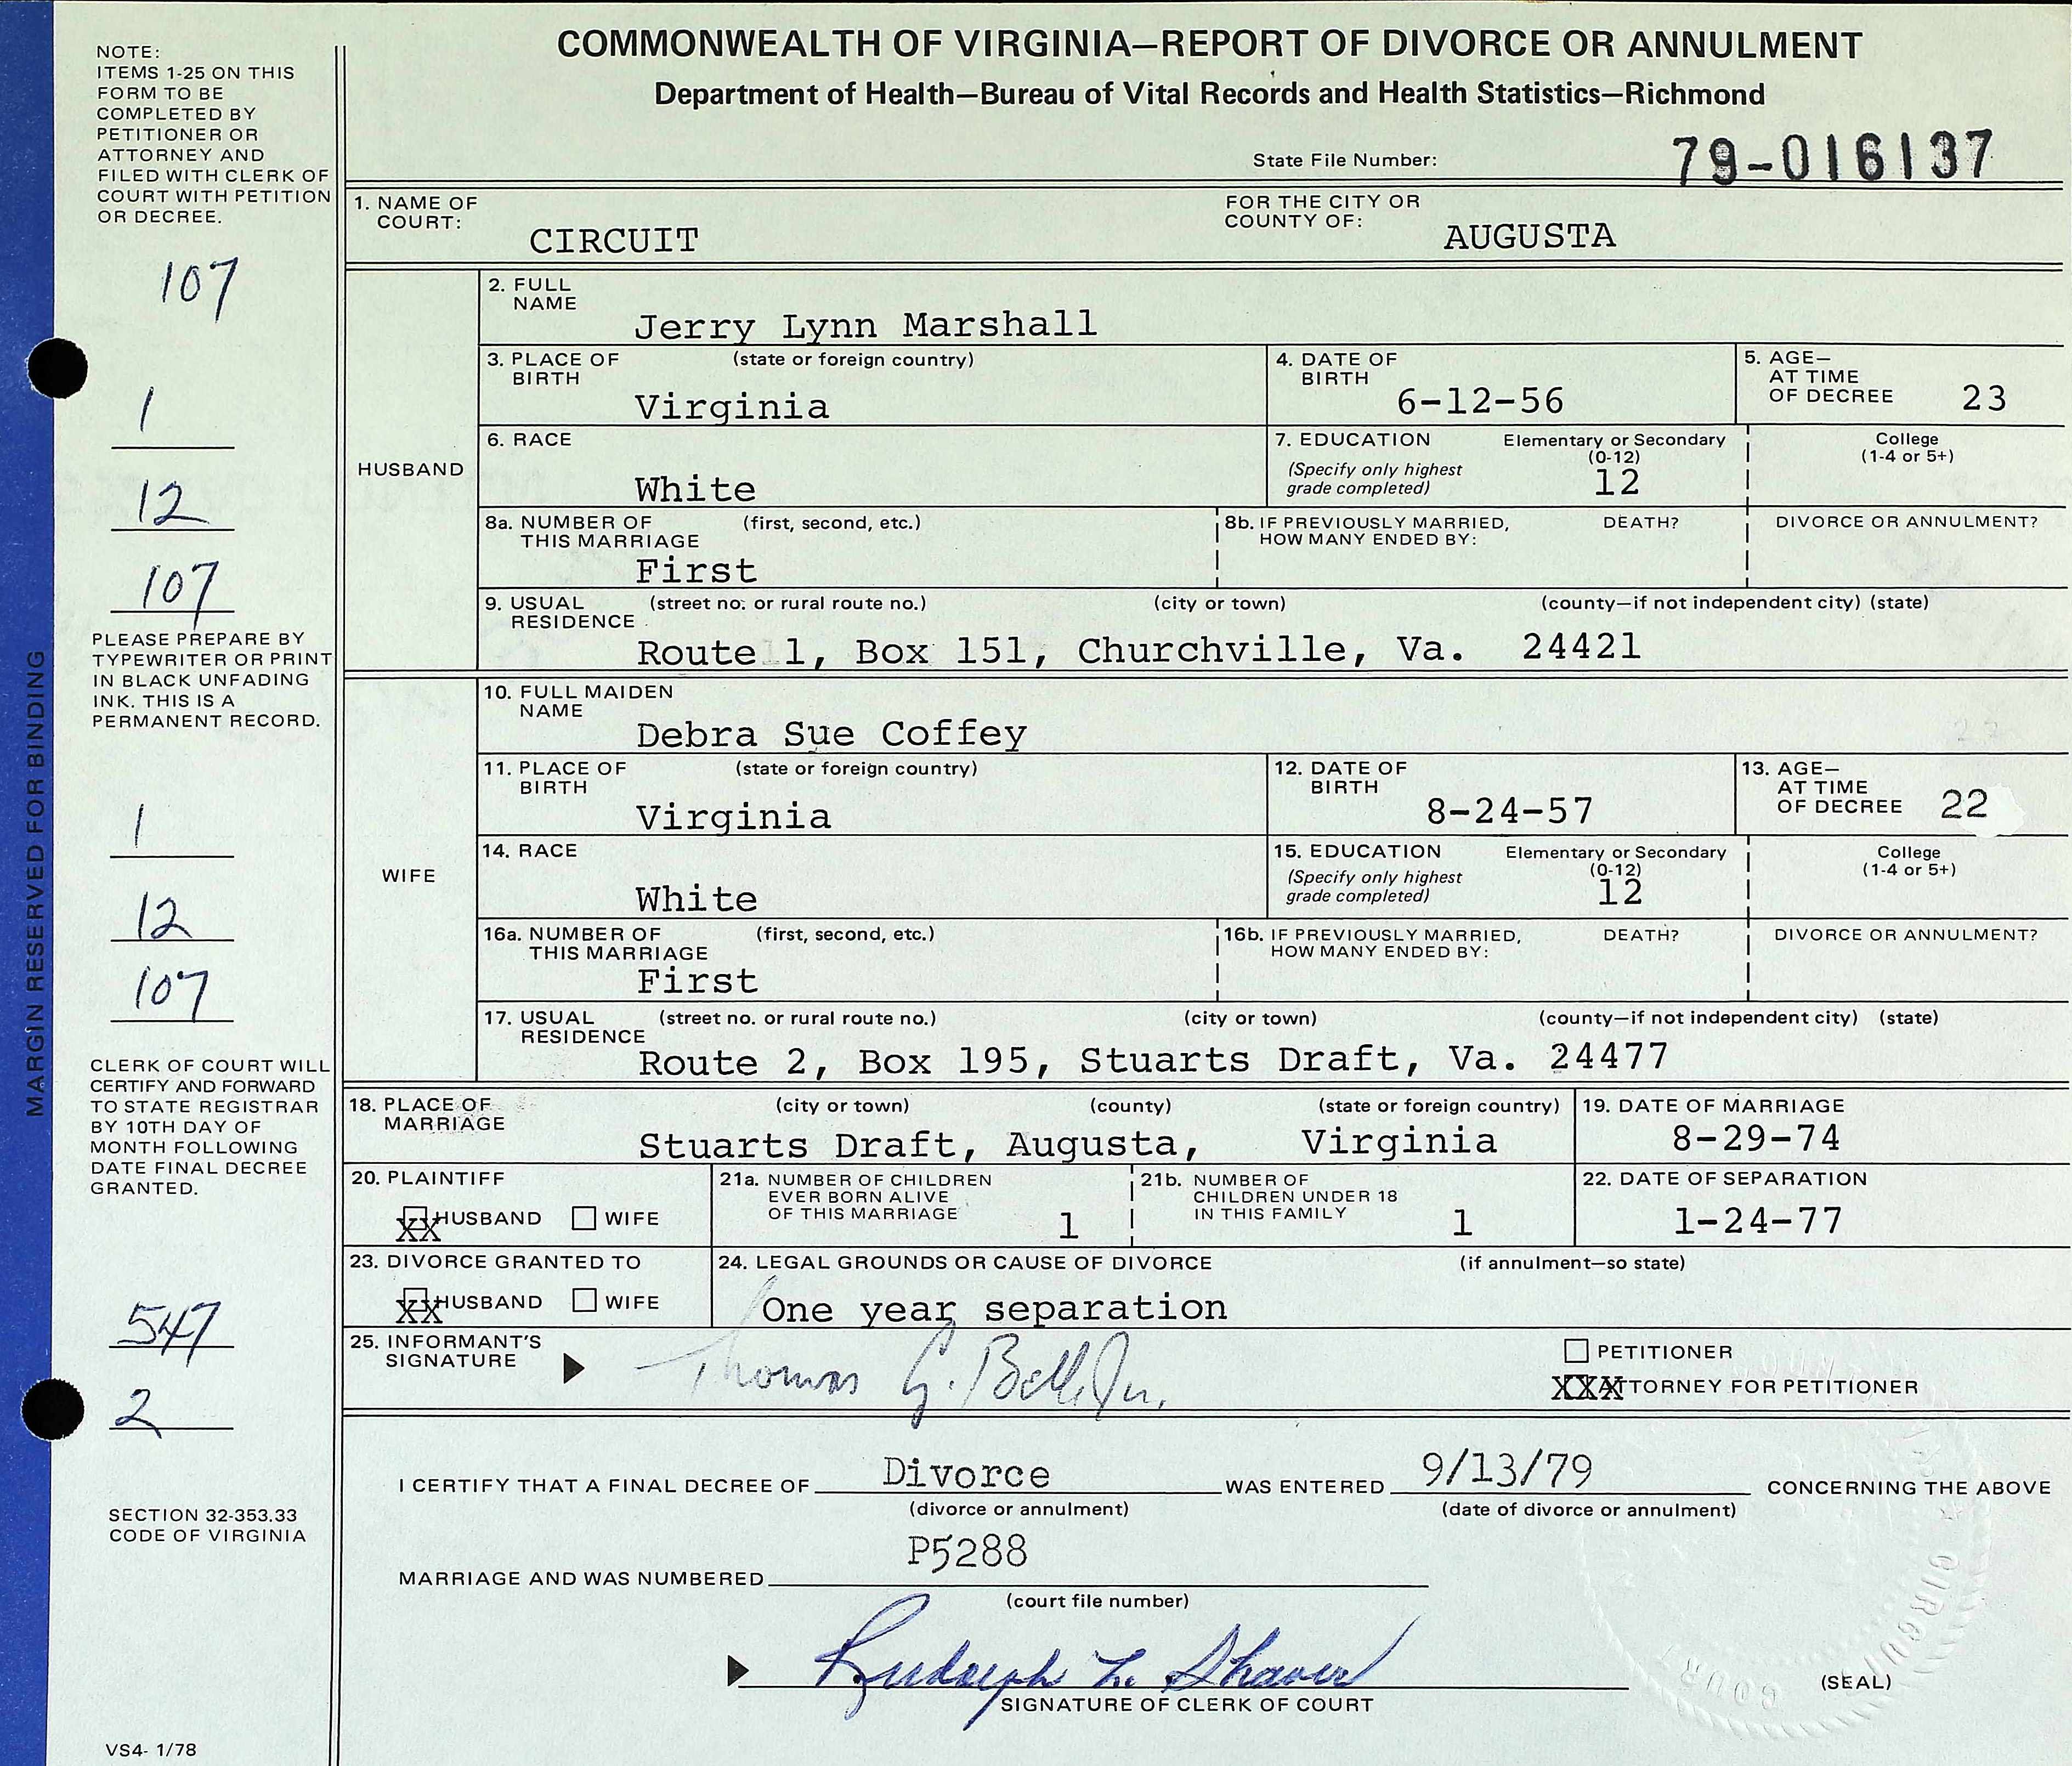 COMMONWEALTH OF VIRGINIA—REPORT OF DIVORCE OR ANNULMENT
Department of Health—Bureau of Vital Records and Health Statistics—Richmond
State File Number: 79-016137
NOTE:
ITEMS 1-25 ON THIS
FORM TO BE
COMPLETED BY
PETITIONER OR
ATTORNEY AND
FILED WITH CLERK OF
COURT WITH PETITION
OR DECREE.
107
1
12
107
PLEASE PREPARE BY
TYPEWRITER OR PRINT
IN BLACK UNFADING
INK. THIS IS A
PERMANENT RECORD.
1
12
107
CLERK OF COURT WILL
CERTIFY AND FORWARD
TO STATE REGISTRAR
BY 10TH DAY OF
MONTH FOLLOWING
DATE FINAL DECREE
GRANTED.
547
2
SECTION 32-353.33
CODE OF VIRGINIA
VS4- 1/78
MARGIN RESERVED FOR BINDING
1. NAME OF COURT: CIRCUIT FOR THE CITY OR COUNTY OF: AUGUSTA
HUSBAND
2. FULL NAME Jerry Lynn Marshall
3. PLACE OF BIRTH (state or foreign country) Virginia 4. DATE OF BIRTH 6-12-56 5. AGE— AT TIME OF DECREE 23
6. RACE White 7. EDUCATION (Specify only highest grade completed) Elementary or Secondary (0-12) 12 College (1-4 or 5+)
8a. NUMBER OF THIS MARRIAGE (first, second, etc.) First 8b. IF PREVIOUSLY MARRIED, HOW MANY ENDED BY: DEATH? DIVORCE OR ANNULMENT?
9. USUAL RESIDENCE (street no. or rural route no.) (city or town) (county—if not independent city) (state)
Route 1, Box 151, Churchville, Va. 24421
WIFE
10. FULL MAIDEN NAME Debra Sue Coffey
11. PLACE OF BIRTH (state or foreign country) Virginia 12. DATE OF BIRTH 8-24-57 13. AGE— AT TIME OF DECREE 22
14. RACE White 15. EDUCATION (Specify only highest grade completed) Elementary or Secondary (0-12) 12 College (1-4 or 5+)
16a. NUMBER OF THIS MARRIAGE (first, second, etc.) First 16b. IF PREVIOUSLY MARRIED, HOW MANY ENDED BY: DEATH? DIVORCE OR ANNULMENT?
17. USUAL RESIDENCE (street no. or rural route no.) (city or town) (county—if not independent city) (state)
Route 2, Box 195, Stuarts Draft, Va. 24477
18. PLACE OF MARRIAGE (city or town) (county) (state or foreign country) 19. DATE OF MARRIAGE
Stuarts Draft, Augusta, Virginia 8-29-74
20. PLAINTIFF XX HUSBAND WIFE 21a. NUMBER OF CHILDREN EVER BORN ALIVE OF THIS MARRIAGE 1 21b. NUMBER OF CHILDREN UNDER 18 IN THIS FAMILY 1 22. DATE OF SEPARATION 1-24-77
23. DIVORCE GRANTED TO XX HUSBAND WIFE 24. LEGAL GROUNDS OR CAUSE OF DIVORCE (if annulment—so state)
One year separation
25. INFORMANT'S SIGNATURE Thomas G. Bell, Jr. PETITIONER
XXX ATTORNEY FOR PETITIONER
I CERTIFY THAT A FINAL DECREE OF Divorce WAS ENTERED 9/13/79 CONCERNING THE ABOVE
(divorce or annulment) (date of divorce or annulment)
MARRIAGE AND WAS NUMBERED P5288
(court file number)
Rudolph L. Shaver
SIGNATURE OF CLERK OF COURT (SEAL)
CIRCUIT COUR